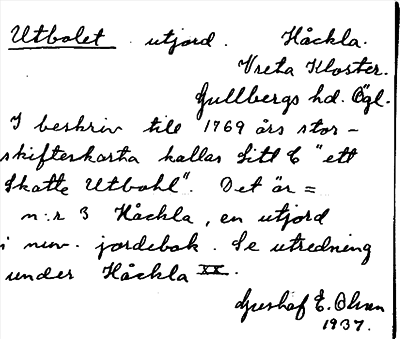 Utbolet utjord. Håckla.
Vreta Kloster.
Gullbergs hd. Ögl.
I beskriv till 1769 års stor-
skifteskarta kallas Litt C "ett
Skatte Utbohl". Det är =
n:r 3 Håckla, en utjord
i nuv. jordebok. Se utredning
under Håckla XX.
Gusthaf E. Olsson
1937.